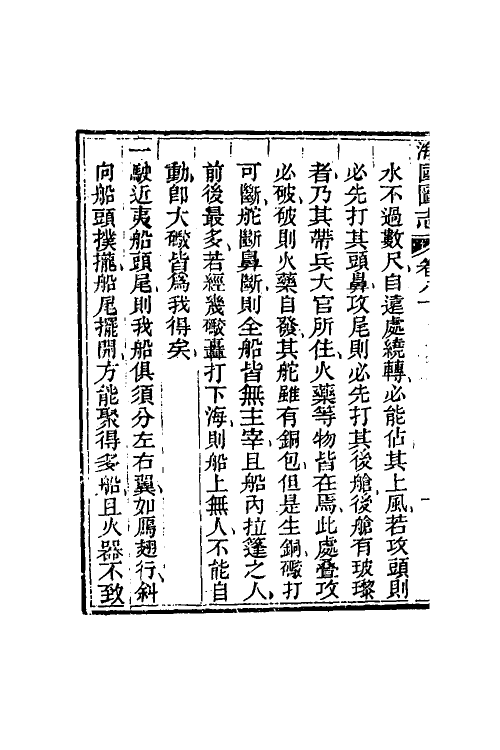 海國圖志 卷八十
水不過數尺自遠處繞轉必能佔其上風若攻頭則
必先打其頭鼻攻尾則必先打其後艙後艙有玻瓈
者乃其帶兵大官所住火藥等物皆在焉此處疊攻
必破破則火藥自發其舵雖有銅包但是生銅礮打
可斷舵斷鼻斷則全船皆無主宰且船內拉篷之人
前後最多若經幾礮轟打下海則船上無人不能自
動卽大礮皆爲我得矣
一駛近夷船頭尾則我船俱須分左右翼如鴈翅行斜
向船頭撲攏船尾擺開方能聚得多船且火器不致